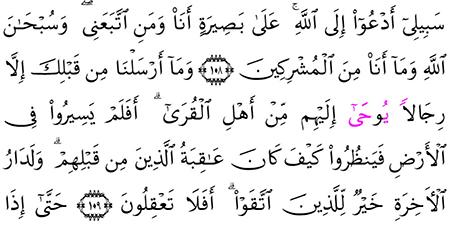 سَبِيلِيٓ أَدْعُوٓاْ إِلَى اَللَّهِۚ عَلَىٰ بَصِيرَةٍ أَنَا۠ وَمَنِ اِ۪تَّبَعَنِيۖ وَسُبْحَٰنَ
اَللَّهِ وَمَآ أَنَا۠ مِنَ اَلْمُشْرِكِينَۖ ١٠٨ وَمَآ أَرْسَلْنَا مِن قَبْلِكَ إِلَّا
رِجَالاٗ يُوحَىٰٓ إِلَيْهِم مِّنْ أَهْلِ اِ۬لْقُرَىٰٓۗ أَفَلَمْ يَسِيرُواْ فِي
اِ۬لْأَرْضِ فَيَنظُرُواْ كَيْفَ كَانَ عَٰقِبَةُ اُ۬لذِينَ مِن قَبْلِهِمْۗ وَلَدَارُ
اُ۬لْأٓخِرَةِ خَيْرٞ لِّلذِينَ اَ۪تَّقَوَاْۗ اَفَلَا تَعْقِلُونَۖ ١٠٩ حَتَّىٰٓ إِذَا